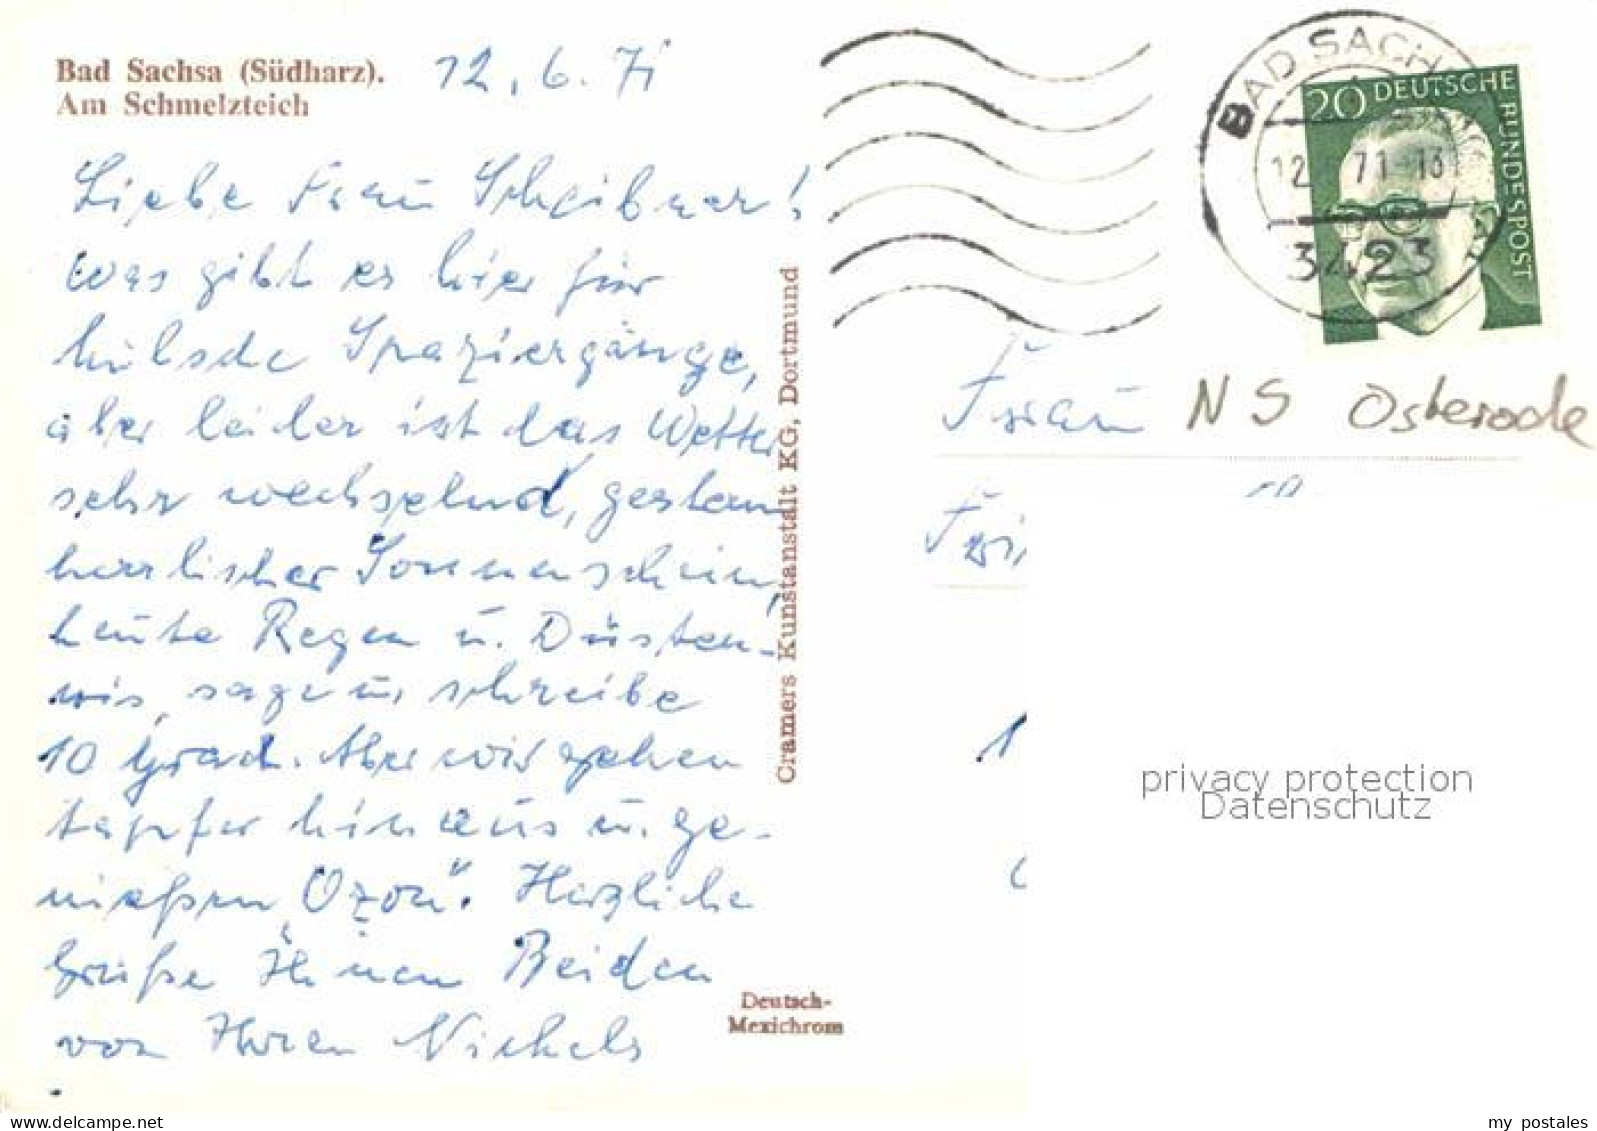 Bad Sachsa (Südharz).
Am Schmelzteich
12. 6. 71
Liebe Frau Scheibner!
Was gibt es hier für
hübsche Spaziergänge,
aber leider ist das Wetter
sehr wechselnd, gestern
herrlicher Sonnenschein,
heute Regen u. Düster-
nis, sage u. schreibe
10 Grad. Aber wir gehen
tapfer hinaus u. ge-
nießen „Ozon“. Herzliche
Grüße Ihnen Beiden
von Ihren Nickels
Cramers Kunstanstalt KG, Dortmund
Deutsch-
Mexichrom
BAD SACH
12 71-13
3423
20 DEUTSCHE
BUNDESPOST
Frau
NS Osterode
privacy protection
Datenschutz
www.delcampe.net
my_postales